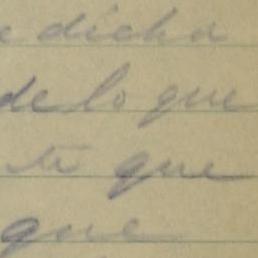 e dicha
de lo que
te que
que